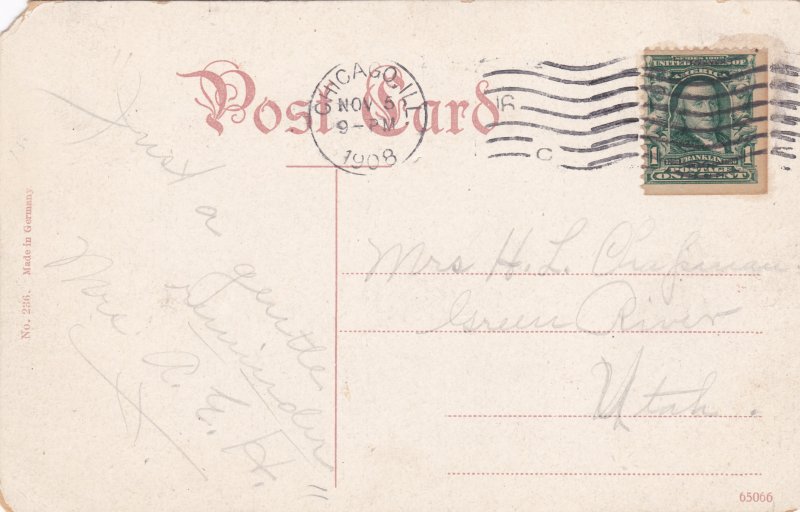 Post Card
CHICAGO, ILL
NOV 5
9-PM
1908
16
C
SERIES 1902
UNITED STATES OF
AMERICA
FRANKLIN
POSTAGE
1 ONE CENT 1
Just a
gentle
reminder"
Mrs. A. E. H.
Mrs H. L. Chipman.
Green River
Utah.
No. 236. Made in Germany.
65066